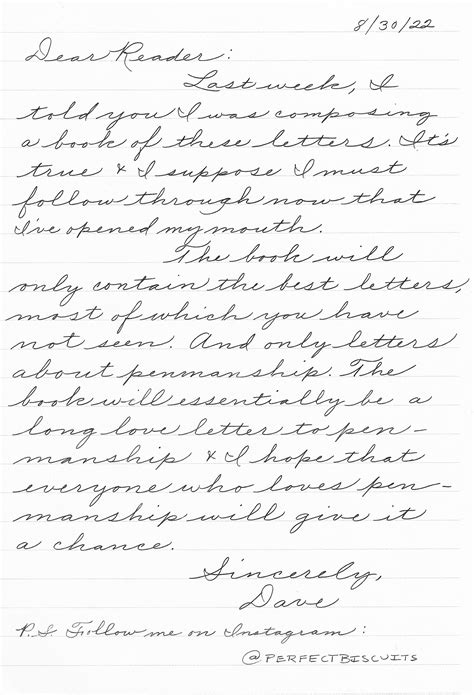 8/30/22
Dear Reader:
Last week, I
told you I was composing
a book of these letters. It's
true & I suppose I must
follow through now that
I've opened my mouth.
The book will
only contain the best letters,
most of which you have
not seen. And only letters
about penmanship. The
book will essentially be a
long love letter to pen-
manship & I hope that
everyone who loves pen-
manship will give it
a chance.
Sincerely,
Dave
P.S. Follow me on Instagram:
@PERFECTBISCUITS